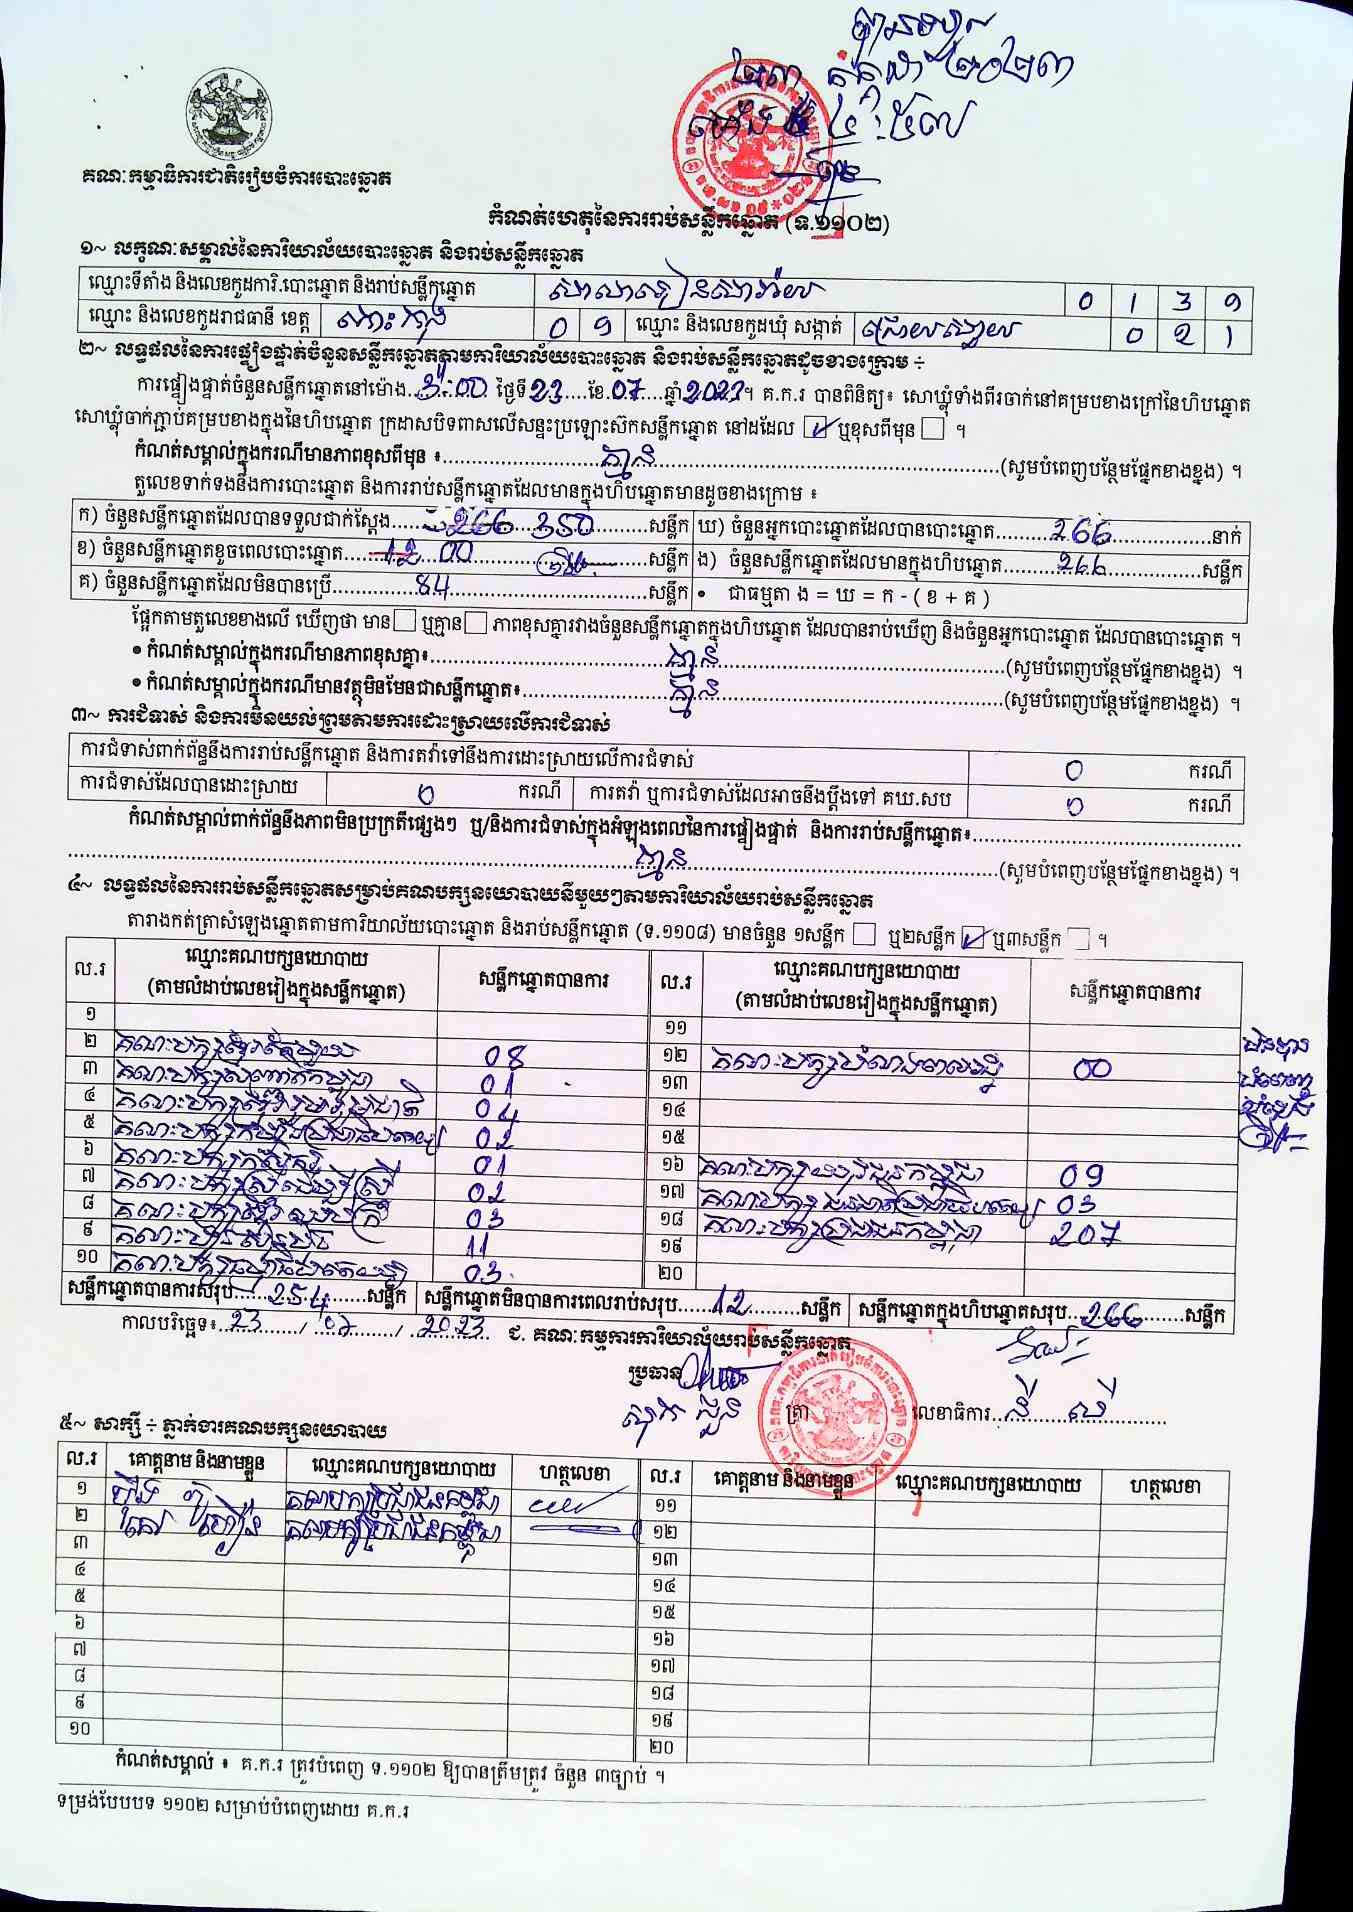 បានឃើញ
២៣ កក្កដា ២០២៣
គណៈកម្មាធិការជាតិរៀបចំការបោះឆ្នោត
កំណត់ហេតុនៃការរាប់សន្លឹកឆ្នោត (ទ.១១០២)
១~ លក្ខណៈសម្គាល់នៃការិយាល័យបោះឆ្នោត និងរាប់សន្លឹកឆ្នោត
ឈ្មោះទីតាំង និងលេខកូដការិ.បោះឆ្នោត និងរាប់សន្លឹកឆ្នោត សាលារៀន 0 1 3 9
ឈ្មោះ និងលេខកូដរាជធានី ខេត្ត កោះកុង 0 9 ឈ្មោះ និងលេខកូដឃុំ សង្កាត់ ជ្រោយស្វាយ 0 2 1
២~ លទ្ធផលនៃការផ្ទៀងផ្ទាត់ចំនួនសន្លឹកឆ្នោតតាមការិយាល័យបោះឆ្នោត និងរាប់សន្លឹកឆ្នោតដូចខាងក្រោម ÷
ការផ្ទៀងផ្ទាត់ចំនួនសន្លឹកឆ្នោតនៅម៉ោង 3:00 ថ្ងៃទី 23 ខែ 07 ឆ្នាំ 2023 ។ គ.ក.រ បានពិនិត្យ៖ សោឃ្លុំទាំងពីរចាក់នៅគម្របខាងក្រៅនៃហិបឆ្នោត
សោឃ្លុំចាក់ភ្ជាប់គម្របខាងក្នុងនៃហិបឆ្នោត ក្រដាសបិទពាសលើសន្ទះប្រឡោះស៊កសន្លឹកឆ្នោត នៅដដែល ☑ ឬខុសពីមុន ☐ ។
កំណត់សម្គាល់ក្នុងករណីមានភាពខុសពីមុន ៖ គ្មាន (សូមបំពេញបន្ថែមផ្នែកខាងខ្នង) ។
តួលេខទាក់ទងនឹងការបោះឆ្នោត និងការរាប់សន្លឹកឆ្នោតដែលមានក្នុងហិបឆ្នោតមានដូចខាងក្រោម ៖
ក) ចំនួនសន្លឹកឆ្នោតដែលបានទទួលជាក់ស្តែង 266 350 សន្លឹក ឃ) ចំនួនអ្នកបោះឆ្នោតដែលបានបោះឆ្នោត 266 នាក់
ខ) ចំនួនសន្លឹកឆ្នោតខូចពេលបោះឆ្នោត 12 00 សន្លឹក ង) ចំនួនសន្លឹកឆ្នោតដែលមានក្នុងហិបឆ្នោត 266 សន្លឹក
គ) ចំនួនសន្លឹកឆ្នោតដែលមិនបានប្រើ 84 សន្លឹក • ជាធម្មតា ង = ឃ = ក - ( ខ + គ )
ផ្អែកតាមតួលេខខាងលើ ឃើញថា មាន ☐ ឬគ្មាន ☐ ភាពខុសគ្នារវាងចំនួនសន្លឹកឆ្នោតក្នុងហិបឆ្នោត ដែលបានរាប់ឃើញ និងចំនួនអ្នកបោះឆ្នោត ដែលបានបោះឆ្នោត ។
• កំណត់សម្គាល់ក្នុងករណីមានភាពខុសគ្នា៖ គ្មាន (សូមបំពេញបន្ថែមផ្នែកខាងខ្នង) ។
• កំណត់សម្គាល់ក្នុងករណីមានវត្ថុមិនមែនជាសន្លឹកឆ្នោត៖ គ្មាន (សូមបំពេញបន្ថែមផ្នែកខាងខ្នង) ។
៣~ ការជំទាស់ និងការមិនយល់ព្រមតាមការដោះស្រាយលើការជំទាស់
ការជំទាស់ពាក់ព័ន្ធនឹងការរាប់សន្លឹកឆ្នោត និងការតវ៉ាទៅនឹងការដោះស្រាយលើការជំទាស់ 0 ករណី
ការជំទាស់ដែលបានដោះស្រាយ 0 ករណី ការតវ៉ា ឬការជំទាស់ដែលអាចនឹងប្តឹងទៅ គឃ.សប 0 ករណី
កំណត់សម្គាល់ពាក់ព័ន្ធនឹងភាពមិនប្រក្រតីផ្សេងៗ ឬ/និងការជំទាស់ក្នុងអំឡុងពេលនៃការផ្ទៀងផ្ទាត់ និងការរាប់សន្លឹកឆ្នោត៖
គ្មាន (សូមបំពេញបន្ថែមផ្នែកខាងខ្នង) ។
៤~ លទ្ធផលនៃការរាប់សន្លឹកឆ្នោតសម្រាប់គណបក្សនយោបាយនីមួយៗតាមការិយាល័យរាប់សន្លឹកឆ្នោត
តារាងកត់ត្រាសំឡេងឆ្នោតតាមការិយាល័យបោះឆ្នោត និងរាប់សន្លឹកឆ្នោត (ទ.១១០៨) មានចំនួន ១សន្លឹក ☐ ឬ២សន្លឹក ☑ ឬ៣សន្លឹក ☐ ។
ល.រ ឈ្មោះគណបក្សនយោបាយ (តាមលំដាប់លេខរៀងក្នុងសន្លឹកឆ្នោត) សន្លឹកឆ្នោតបានការ ល.រ ឈ្មោះគណបក្សនយោបាយ (តាមលំដាប់លេខរៀងក្នុងសន្លឹកឆ្នោត) សន្លឹកឆ្នោតបានការ
១ ១១
២ គណៈបក្ស 08 ១២ គណៈបក្ស 00
៣ គណៈបក្ស 01 ១៣
៤ គណៈបក្ស 04 ១៤
៥ គណៈបក្ស 02 ១៥
៦ គណៈបក្សកសិករ 01 ១៦ គណៈបក្សយុវជនកម្ពុជា 09
៧ គណៈបក្សស្ត្រីដើម្បីស្ត្រី 02 ១៧ គណៈបក្ស 03
៨ គណៈបក្សខ្មែររួបរួម 03 ១៨ គណៈបក្សប្រជាជនកម្ពុជា 207
៩ គណៈបក្ស 11 ១៩
១០ គណៈបក្សធម្មាធិបតេយ្យ 03 ២០
សន្លឹកឆ្នោតបានការសរុប 254 សន្លឹក សន្លឹកឆ្នោតមិនបានការពេលរាប់សរុប 12 សន្លឹក សន្លឹកឆ្នោតក្នុងហិបឆ្នោតសរុប 266 សន្លឹក
កាលបរិច្ឆេទ៖ 23 / 07 / 2023 ជ. គណៈកម្មការការិយាល័យរាប់សន្លឹកឆ្នោត
ប្រធាន
ត្រា លេខាធិការ
៥~ សាក្សី ÷ ភ្នាក់ងារគណបក្សនយោបាយ
ល.រ គោត្តនាម និងនាមខ្លួន ឈ្មោះគណបក្សនយោបាយ ហត្ថលេខា ល.រ គោត្តនាម និងនាមខ្លួន ឈ្មោះគណបក្សនយោបាយ ហត្ថលេខា
១ គណបក្សប្រជាជនកម្ពុជា ១១
២ គណបក្សប្រជាជនកម្ពុជា ១២
៣ ១៣
៤ ១៤
៥ ១៥
៦ ១៦
៧ ១៧
៨ ១៨
៩ ១៩
១០ ២០
កំណត់សម្គាល់ ៖ គ.ក.រ ត្រូវបំពេញ ទ.១១០២ ឱ្យបានត្រឹមត្រូវ ចំនួន ៣ច្បាប់ ។
ទម្រង់បែបបទ ១១០២ សម្រាប់បំពេញដោយ គ.ក.រ